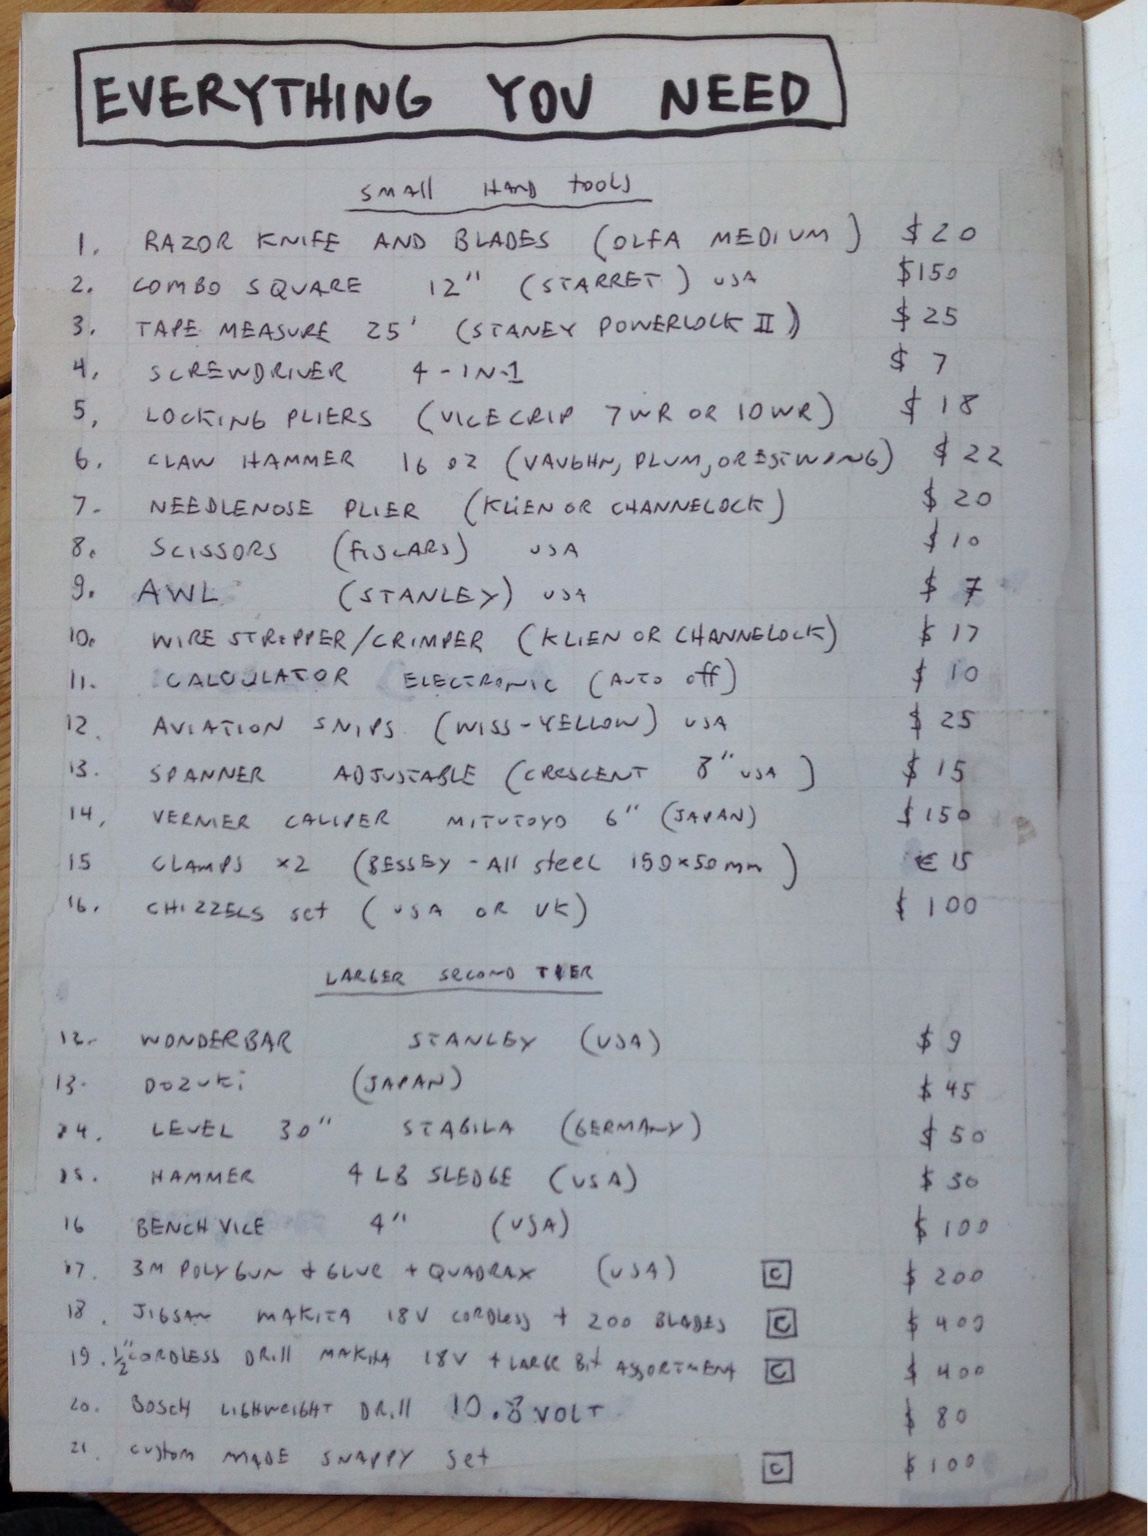 EVERYTHING YOU NEED
SMAll HAND tools
1. RAZOR KNIFE AND BLADES (OLFA MEDIUM) $20
2. COMBO SQUARE 12" (STARRET) USA $150
3. TAPE MEASURE 25' (STANEY POWERLOCK II) $25
4. SCREWDRIVER 4-IN-1 $7
5, LOCKING PLIERS (VICECRIP 7WR OR 10WR) $18
6. CLAW HAMMER 16 oz (VAUGHN, PLUM, OR ESTWING) $22
7. NEEDLENOSE PLIER (KLIEN OR CHANNELOCK) $20
8. SCISSORS (FISCARS) USA $10
9. AWL (STANLEY) USA $7
10. WIRE STRIPPER/CRIMPER (KLIEN OR CHANNELOCK) $17
11. CALCULATOR ELECTRONIC (AUTO off) $10
12. AVIATION SNIPS (WISS-YELLOW) USA $25
13. SPANNER ADJUSTABLE (CRESCENT 8" USA) $15
14, VERNIER CALIPER MITUTOYO 6" (JAPAN) $150
15 CLAMPS x2 (BESSEY - All steel 150x50mm) €15
16. CHIZZELS set (USA OR UK) $100
LARGER SECOND TIER
12. WONDERBAR STANLEY (USA) $9
13. DOZUKi (JAPAN) $45
14. LEVEL 30" STABILA (GERMANY) $50
15. HAMMER 4 LB SLEDGE (USA) $30
16 BENCH VICE 4" (USA) $100
17. 3M POLYGUN + GLUE + QUADRAX (USA) C $200
18. JIGSAW MAKITA 18V CORDLESS + 200 BLADES C $400
19. 1/2" CORDLESS DRill MAKITA 18V + LARGE Bit ASSORTMENT C $400
20. BOSCH LIGHWEIGHT DRill 10.8 VOLT $80
21. custom MADE SNAPPY set C $100